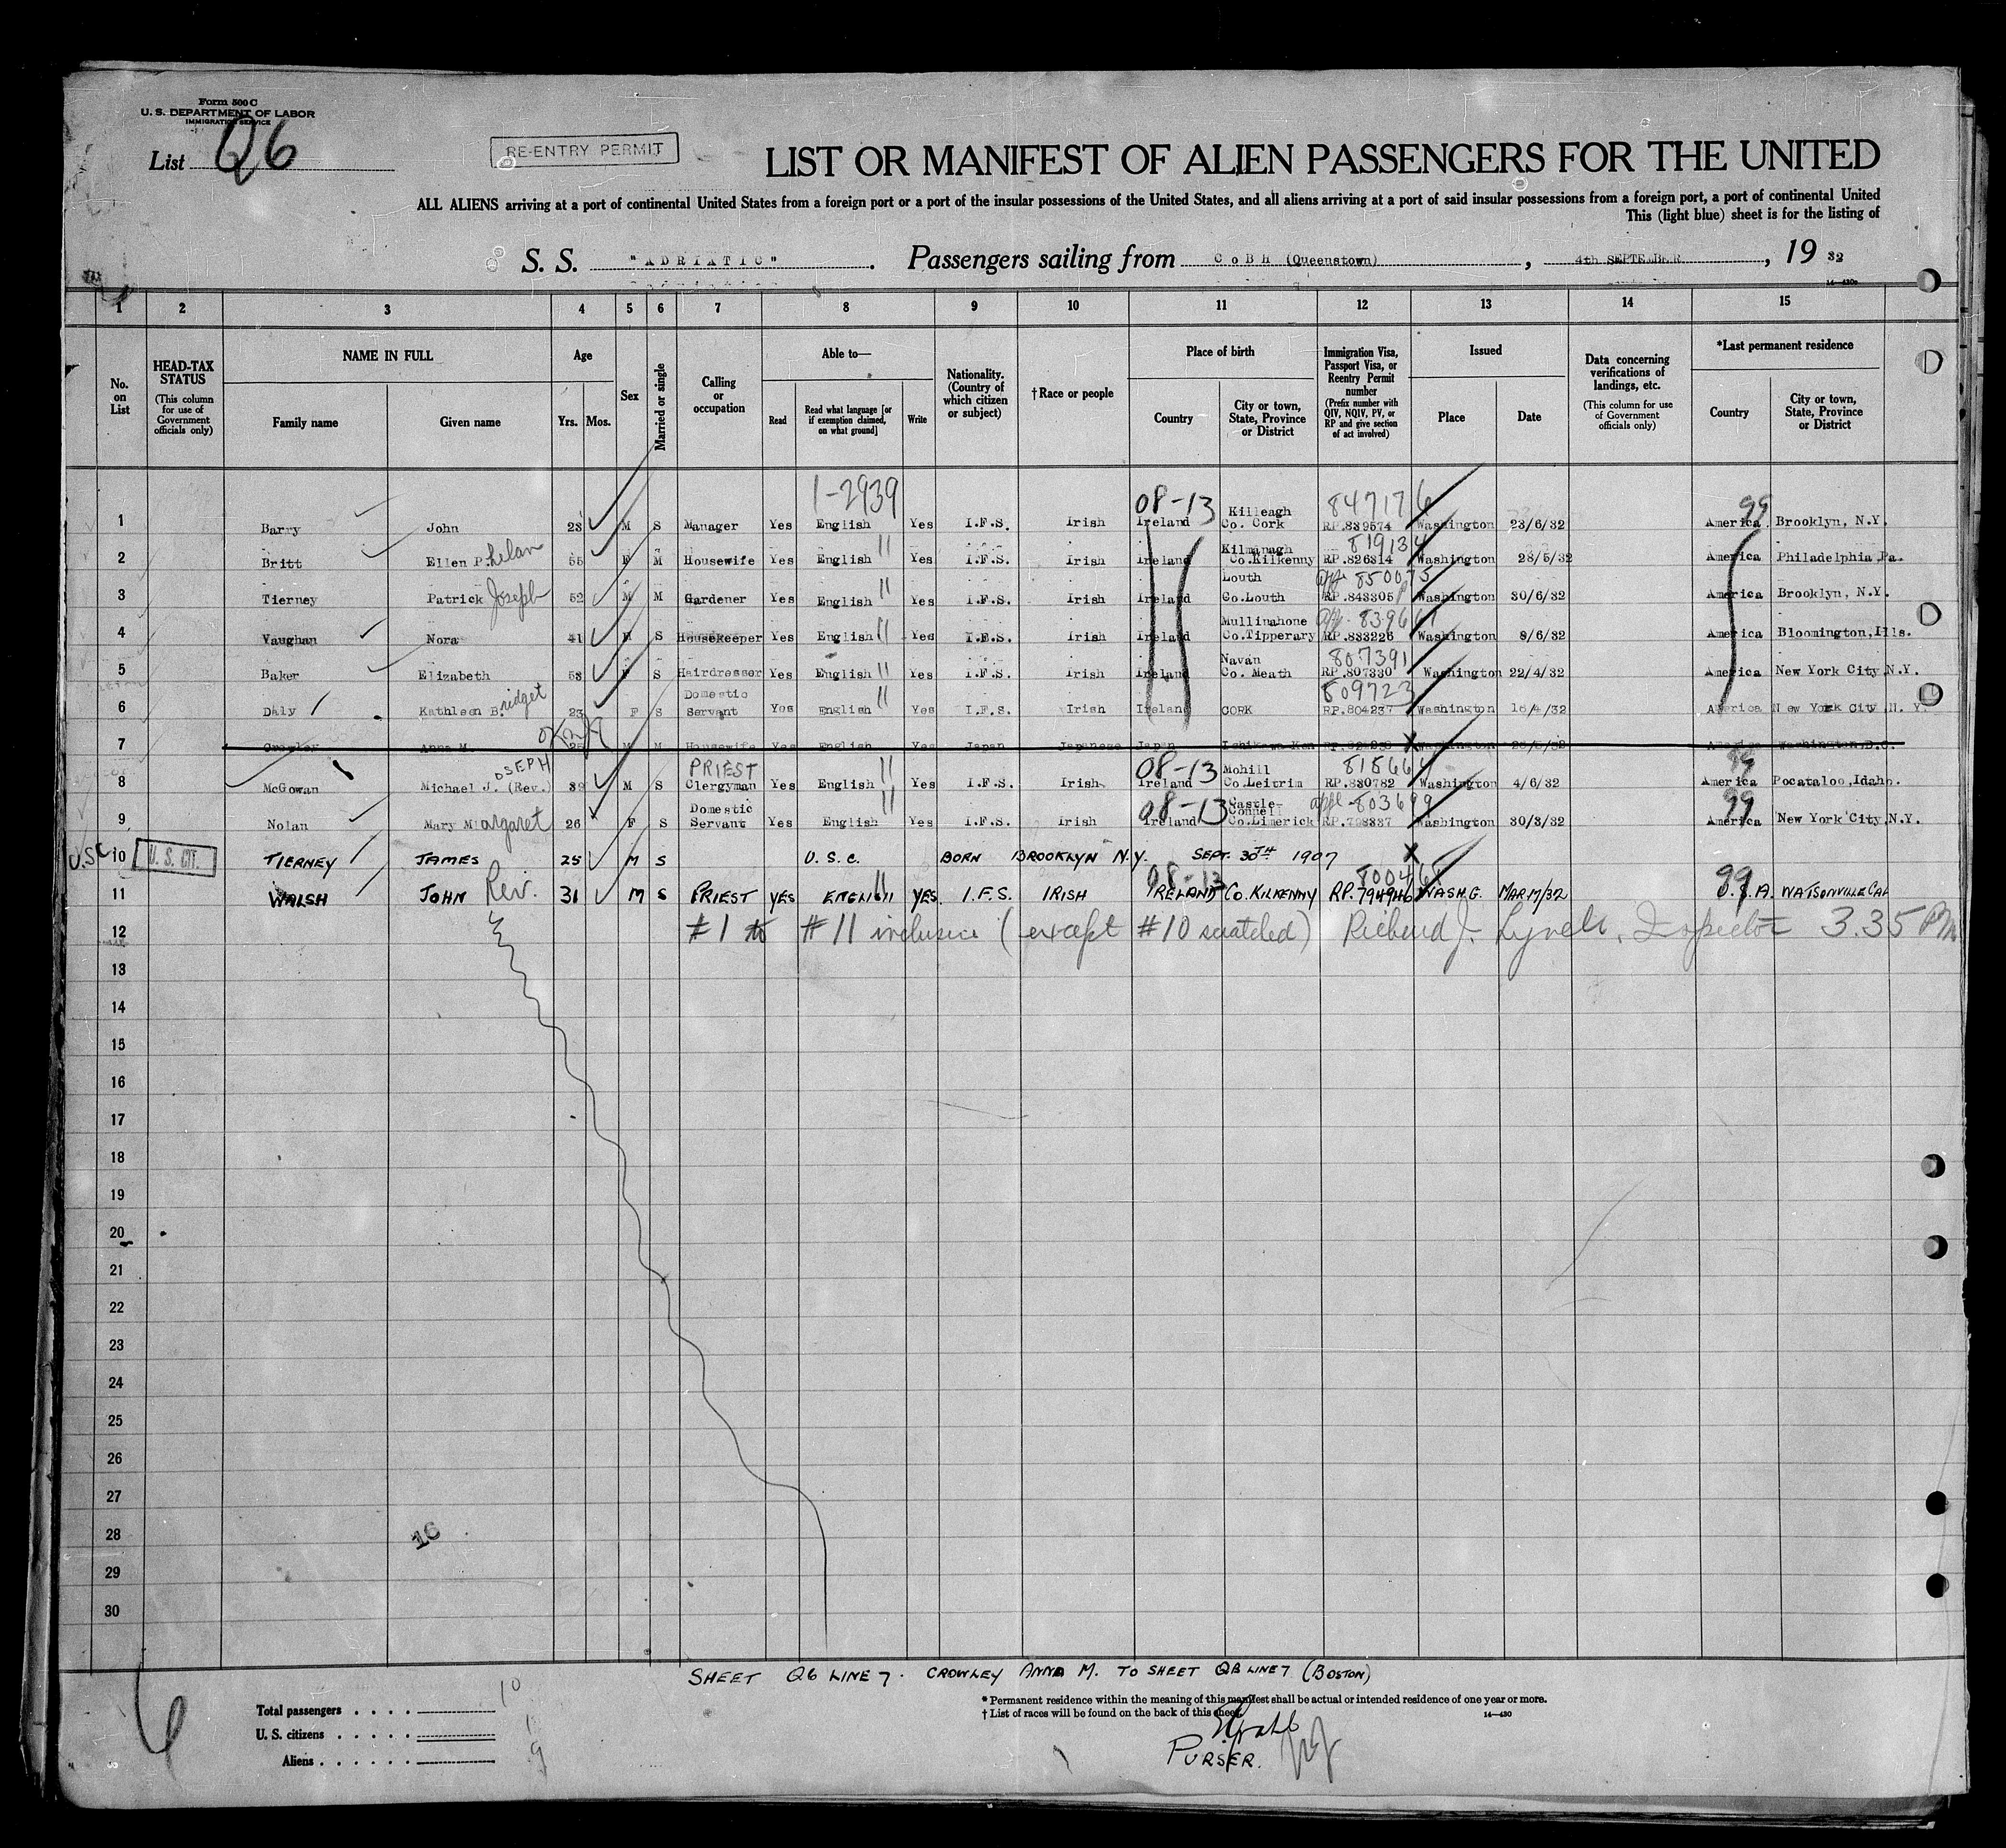 Form 500 C
U. S. DEPARTMENT OF LABOR
IMMIGRATION SERVICE
List Q6
RE-ENTRY PERMIT
LIST OR MANIFEST OF ALIEN PASSENGERS FOR THE UNITED
ALL ALIENS arriving at a port of continental United States from a foreign port or a port of the insular possessions of the United States, and all aliens arriving at a port of said insular possessions from a foreign port, a port of continental United
This (light blue) sheet is for the listing of
S. S. "ADRIATIC". Passengers sailing from COBH (Queenstown), 4th SEPTEMBER, 19 32
1 2 3 4 5 6 7 8 9 10 11 12 13 14 15
No. on List
HEAD-TAX STATUS (This column for use of Government officials only)
NAME IN FULL Family name Given name
Age Yrs. Mos.
Sex
Married or single
Calling or occupation
Able to— Read Read what language [or if exemption claimed, on what ground] Write
Nationality. (Country of which citizen or subject)
†Race or people
Place of birth Country City or town, State, Province or District
Immigration Visa, Passport Visa, or Reentry Permit number (Prefix number with QIV, NQIV, PV, or RP and give section of act involved)
Issued Place Date
Data concerning verifications of landings, etc. (This column for use of Government officials only)
*Last permanent residence Country City or town, State, Province or District
1-2939 08-13 Killeagh 847176 99
1 Barry John 23 M S Manager Yes English Yes I.F.S. Irish Ireland Co. Cork RP.839574 Washington 23/6/32 America Brooklyn, N.Y.
Kilmanagh 819134
2 Britt Ellen Phelan 55 F M Housewife Yes English " Yes I.F.S. Irish Ireland Co.Kilkenny RP.826814 Washington 28/5/32 America Philadelphia,Pa.
Louth 850075
3 Tierney Patrick Joseph 52 M M Gardener Yes English " Yes I.F.S. Irish Ireland Co.Louth RP.843305 Washington 30/6/32 America Brooklyn, N.Y.
Mullinahone
4 Vaughan Nora 41 F S Housekeeper Yes English " Yes I.F.S. Irish Ireland Co.Tipperary RP.833226 Washington 8/6/32 America Bloomington,Ills.
Navan 807391
5 Baker Elizabeth 53 F S Hairdresser Yes English " Yes I.F.S. Irish Ireland Co. Meath RP.807330 Washington 22/4/32 America New York City,N.Y.
Domestic 809723
6 Daly Kathleen Bridget 23 F S Servant Yes English " Yes I.F.S. Irish Ireland CORK RP.804237 Washington 16/4/32 America New York City,N.Y.
7 Crowley Anna M. 25 M Housewife Yes English Yes Japan Japanese Japan Ishikawa Ken Washington America Washington,D.C.
OSEPH PRIEST " 08-13 Mohill 818664 99
8 McGowan Michael J. (Rev.) 39 M S Clergyman Yes English Yes I.F.S. Irish Ireland Co.Leitrim RP.830782 Washington 4/6/32 America Pocataloo,Idaho.
Domestic " 08-13 Castle-Connell appl 803699 99
9 Nolan Mary Margaret 26 F S Servant Yes English Yes I.F.S. Irish Ireland Co.Limerick RP.798337 Washington 30/3/32 America New York City,N.Y.
U.S.C. 10 U. S. CIT. TIERNEY JAMES 25 M S U.S.C. BORN BROOKLYN N.Y. SEPT. 30TH 1907 X
08-13 800468 99
11 WALSH JOHN Rev. 31 M S PRIEST YES ENGLISH YES. I.F.S. IRISH IRELAND CO.KILKENNY RP.794946 WASHG. MAR 17/32 U.S.A. WATSONVILLE CAL
12 #1 to #11 inclusive (except #10 scratched) Richard J. Lynch, Inspector 3.35 PM
13
14
15
16
17
18
19
20
21
22
23
24
25
26
27
28 16
29
30
SHEET Q6 LINE 7. CROWLEY ANNA M. TO SHEET QB LINE 7 (BOSTON)
Total passengers . . . . 10
U. S. citizens . . . . . 1
Aliens . . . . . . 9
* Permanent residence within the meaning of this manifest shall be actual or intended residence of one year or more.
† List of races will be found on the back of this sheet.
14—430
PURSER.